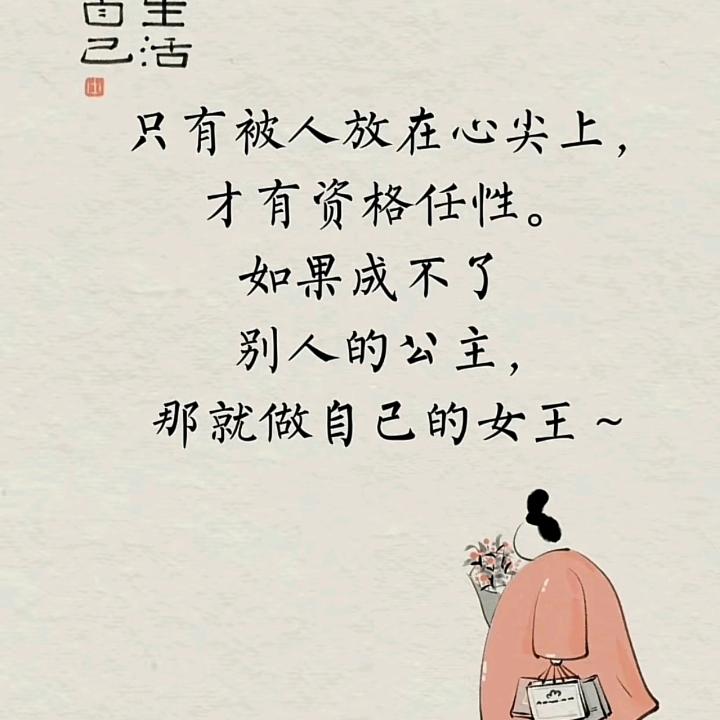 生活
自己
只有被人放在心尖上，
才有资格任性。
如果成不了
别人的公主，
那就做自己的女王~